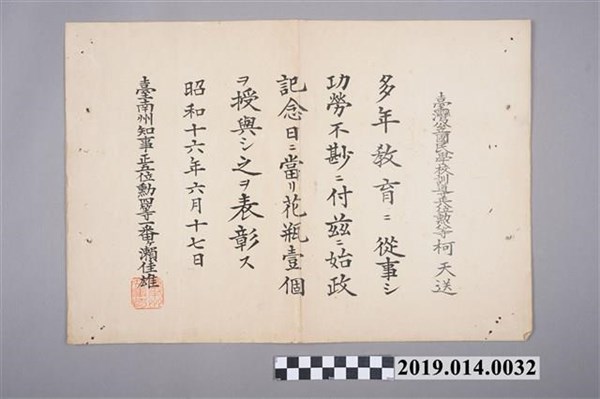 臺灣公立國民學校訓導 勲八等 柯天送
多年教育ニ從事シ
功勞不尠ニ付茲ニ始政
記念日ニ當リ花瓶壹個
ヲ授與シ之ヲ表彰ス
昭和十六年六月十七日
臺南州知事正五位勲四等一番ヶ瀬佳雄
2019.014.0032